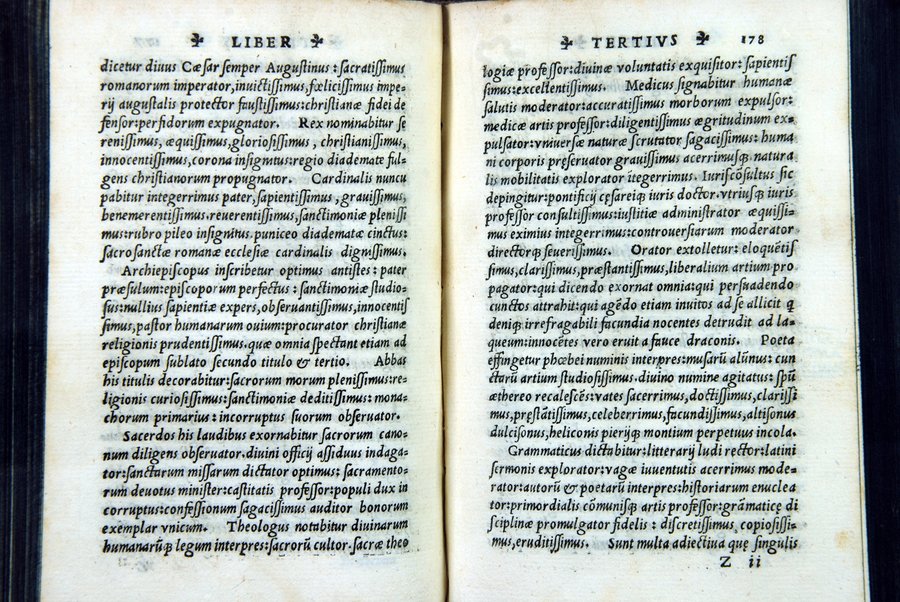 ✤ LIBER ✤
dicetur diuus Cæsar semper Augustinus : sacratissimus
romanorum imperator, inuictissimus, fœlicissimus impe-
rij augustalis protector faustissimus: christianæ fidei de
fensor: perfidorum expugnator. Rex nominabitur se
renissimus, æquissimus, gloriosissimus, christianissimus,
innocentissimus, corona insignitus: regio diademate ful-
gens christianorum propugnator. Cardinalis nuncu
pabitur integerrimus pater, sapientissimus, grauissimus,
benemerentissimus. reuerentissimus, sanctimoniæ plenissi
mus: rubro pileo insignitus. puniceo diademate cinctus:
sacrosanctæ romanæ ecclesiæ cardinalis dignissimus.
Archiepiscopus inscribetur optimus antistes : pater
præsulum: episcoporum perfectus : sanctimoniæ studio-
sus: nullius sapientiæ expers, obseruantissimus, innocentis
simus, pastor humanarum ouium: procurator christianæ
religionis prudentissimus. quæ omnia spectant etiam ad
episcopum sublato secundo titulo & tertio. Abbas
his titulis decorabitur: sacrorum morum plenissimus: re-
ligionis curiosissimus: sanctimoniæ deditissimus: mona-
chorum primarius : incorruptus suorum obseruator.
Sacerdos his laudibus exornabitur sacrorum cano-
num diligens obseruator. diuini officij assiduus indaga-
tor: sanctarum missarum dictator optimus: sacramento-
rum deuotus minister: castitatis professor: populi dux in
corruptus: confessionum sagacissimus auditor bonorum
exemplar vnicum. Theologus notabitur diuinarum
humanarũq; legum interpres: sacrorũ cultor. sacræ theo
✤ TERTIVS ✤ 178
logiæ professor: diuinæ voluntatis exquisitor: sapientis
simus: excellentissimus. Medicus signabitur humanæ
salutis moderator: accuratissimus morborum expulsor:
medicæ artis professor: diligentissimus ægritudinum ex-
pulsator: vniuersæ naturæ scrutator sagacissimus: huma
ni corporis preseruator grauissimus acerrimusq; natura
lis mobilitatis explorator itegerrimus. Iuriscõsultus sic
depingitur: pontificij cęsareiq; iuris doctor. vtriusq; iuris
professor consultissimus: iustitiæ administrator æquissi-
mus eximius integerrimus: controuersiarum moderator
directorq; seuerissimus. Orator extolletur: eloquẽtis
simus, clarissimus, præstantissimus, liberalium artium pro
pagator: qui dicendo exornat omnia: qui persuadendo
cunctos attrahit: qui agẽdo etiam inuitos ad se allicit q
deniq; irrefragabili facundia nocentes detrudit ad la-
queum: innocẽtes vero eruit a fauce draconis. Poeta
effingetur phœbei numinis interpres: musarũ alũnus: cun
ctarũ artium studiosissimus. diuino numine agitatus: spũ
æthereo recalescẽs: vates sacerrimus, doctissimus, clarissi
mus, pręstãtissimus, celeberrimus, facundissimus, altisonus
dulcisonus, heliconis pierijq; montium perpetuus incola.
Grammaticus dictabitur: litterarij ludi rector: latini
sermonis explorator: vagæ iuuentutis acerrimus mode-
rator: autorũ & poetarũ interpres: historiarum enuclea
tor: primordialis cõmunisq; professor: grãmaticę di
sciplinæ promulgator fidelis : discretissimus copiosissi-
mus, eruditissimus. Sunt multa adiectiua quę singulis
Z ii